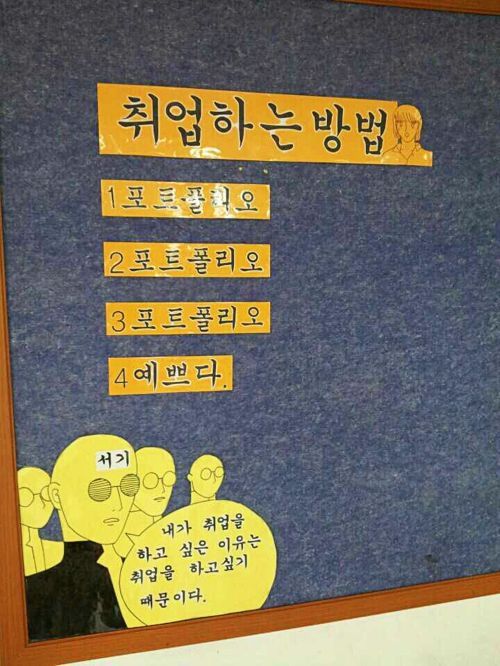 취업하는 방법
1 포트폴리오
2 포트폴리오
3 포트폴리오
4 예쁘다.
서기
내가 취업을
하고 싶은 이유는
취업을 하고싶기
때문이다.